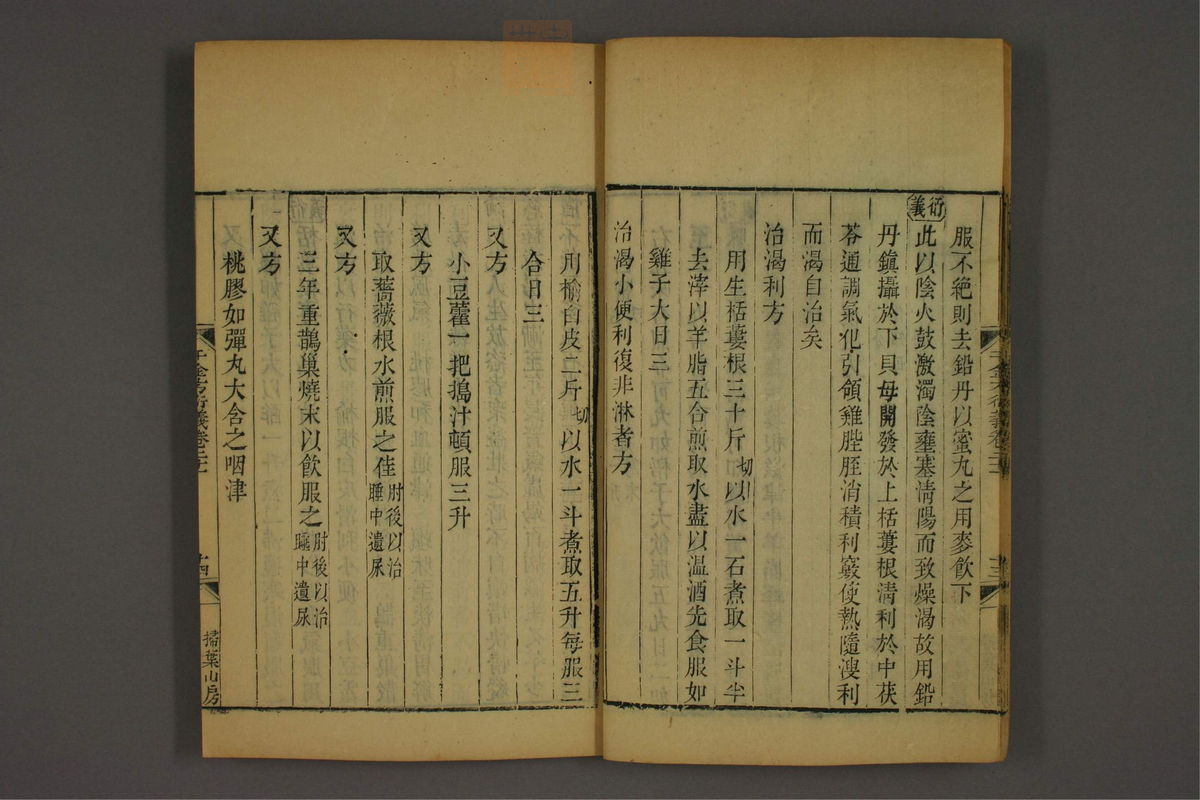 服不絶則去鉛丹以蜜丸之用麥飲下
衍義此以陰火鼓激濁陰壅塞情陽而致燥渴故用鉛
丹鎮攝於下貝母開發於上栝蔞根淸利於中茯
苓通調氣化引領雞膍胵消積利竅使熱隨溲利
而渴自治矣
治渴利方
用生栝蔞根三十斤切以水一石煮取一斗半
去滓以羊脂五合煎取水盡以温酒先食服如
雞子大日三
治渴小便利復非淋者方
用榆白皮二斤切以水一斗煮取五升每服三
合日三
又方
小豆藿一把搗汁頓服三升
又方
取薔薇根水煎服之佳肘後以治睡中遺尿
又方
三年重鵲巢燒末以飲服之肘後以治睡中遺尿
又方
桃膠如彈丸大含之咽津
千金方衍義卷二十一
十四
掃葉山房